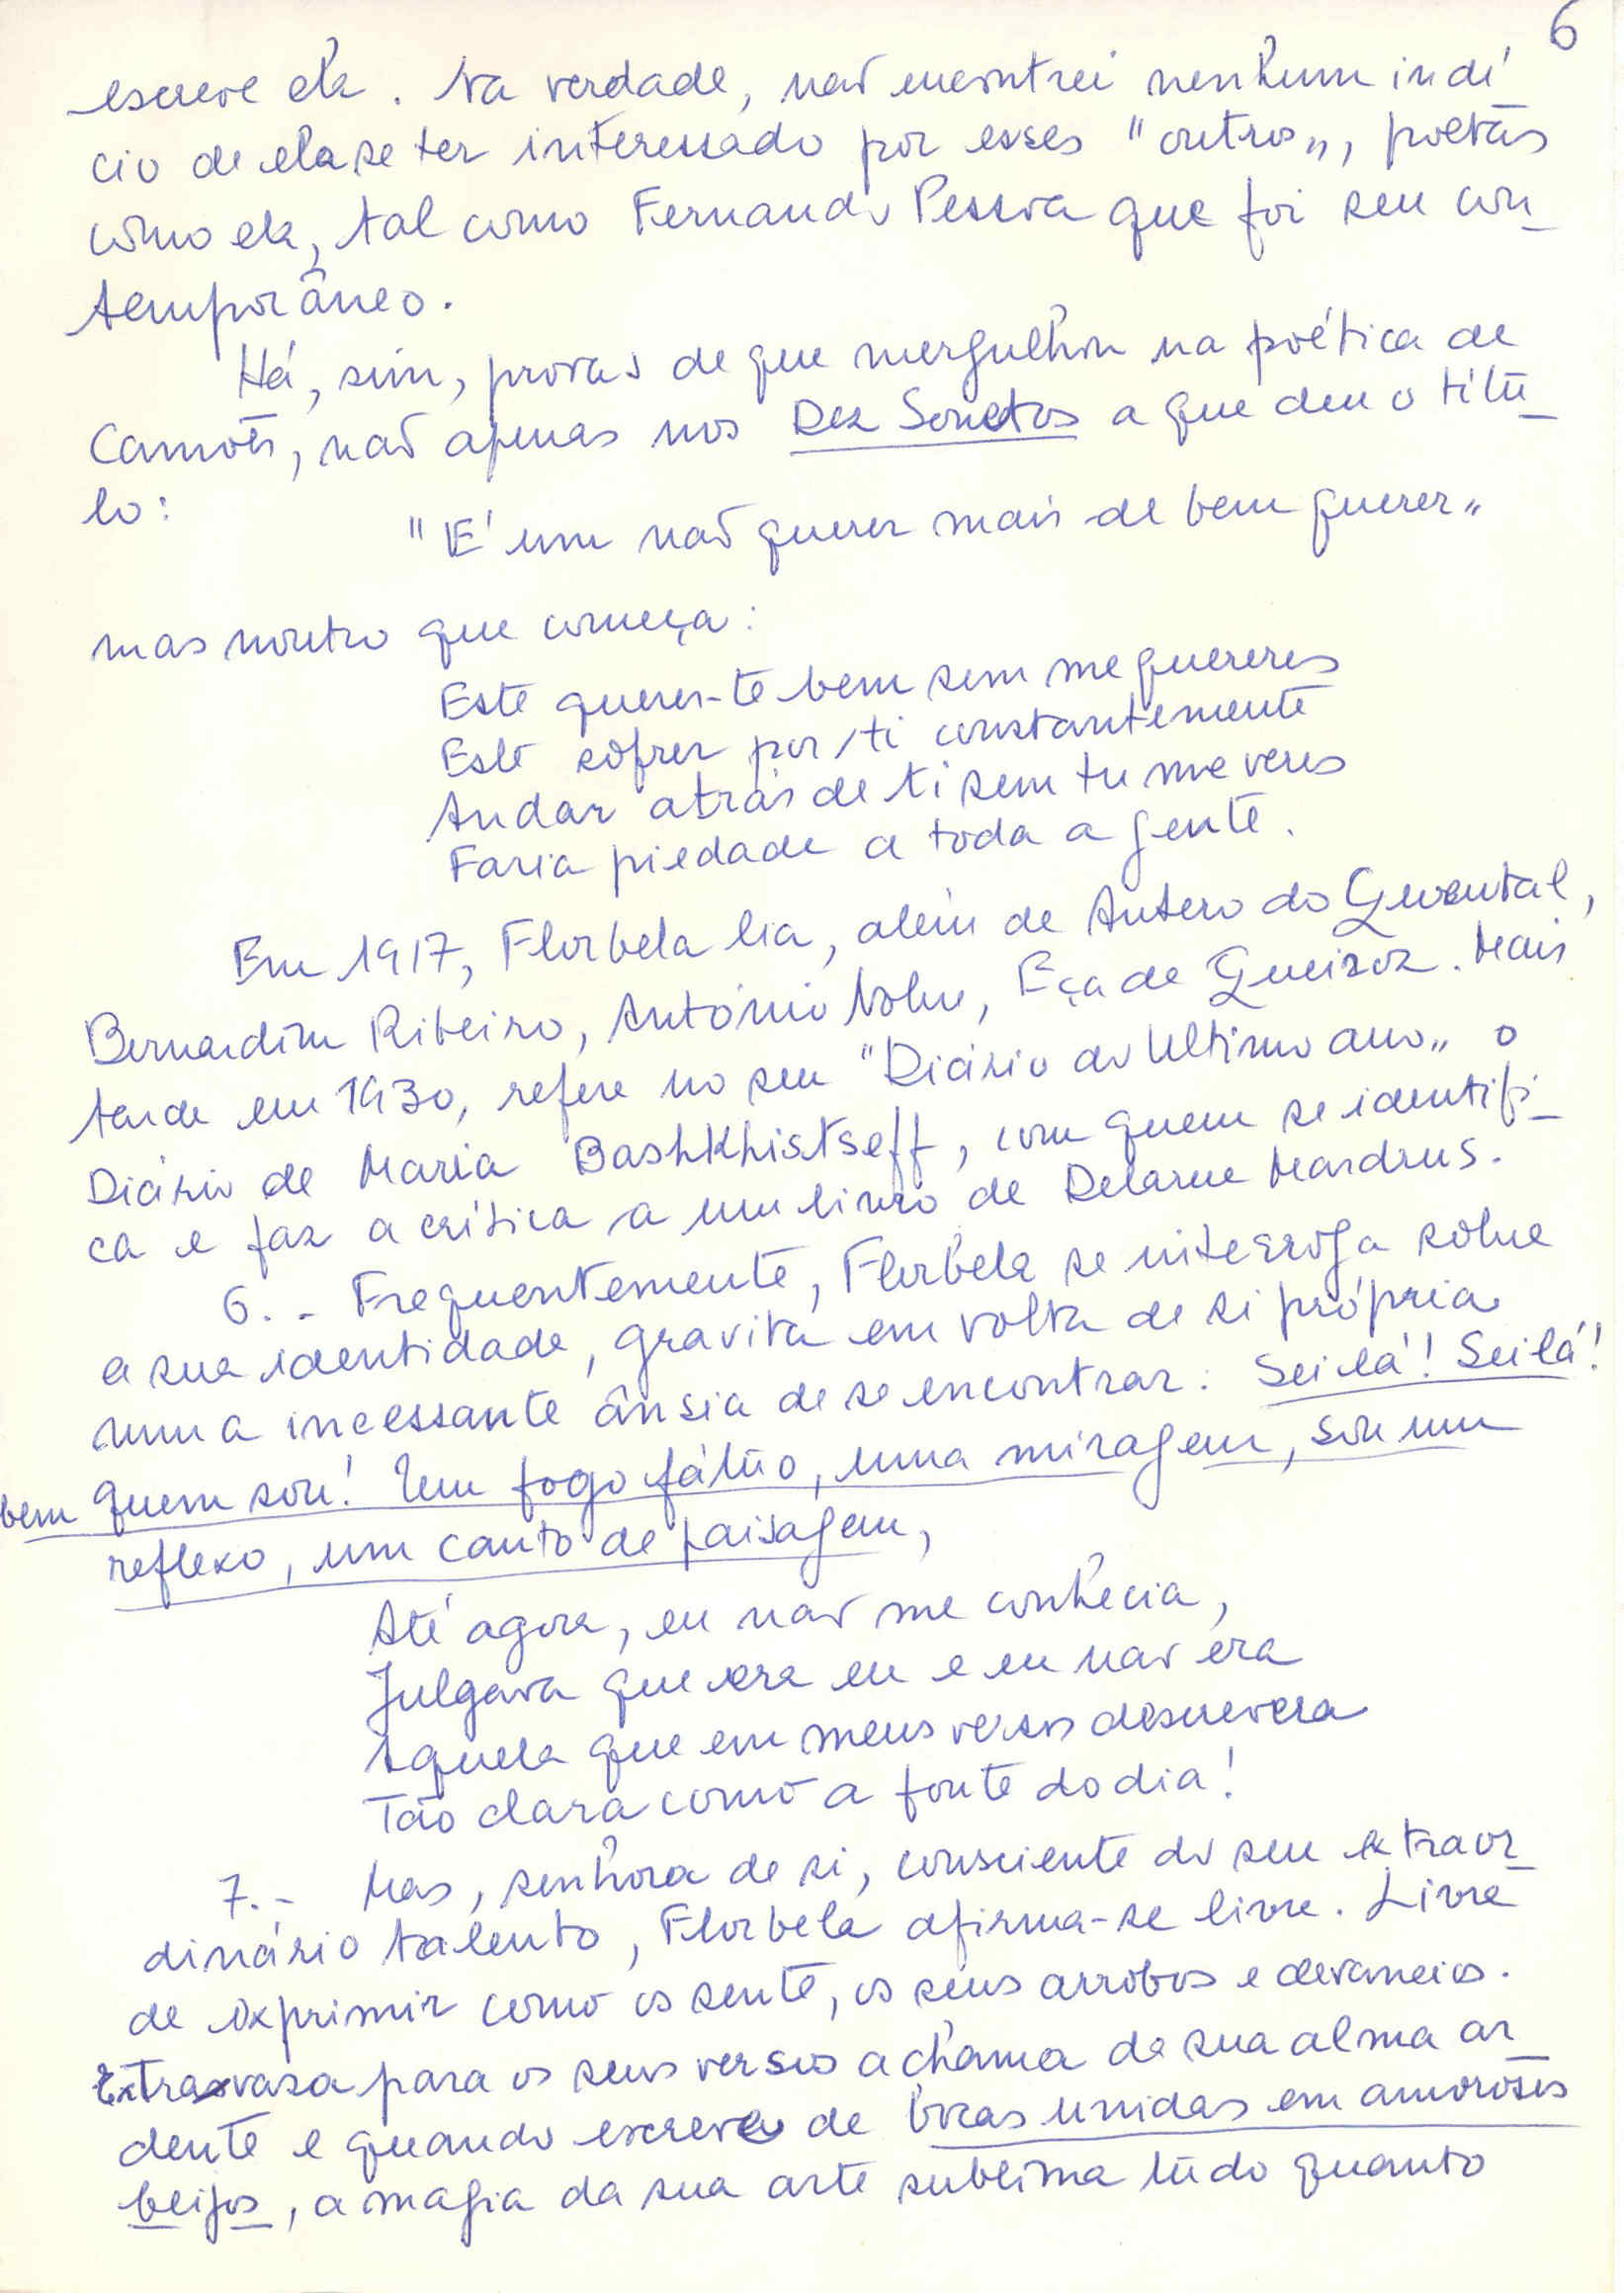 6
escreve ela. Na verdade, não encontrei nenhum indí
cio de ela se ter interessado por esses "outros", poetas
como ela, tal como Fernando Pessoa que foi seu con_
temporâneo.
Há, sim, provas de que mergulhou na poética de
Camões, não apenas nos Dez Sonetos a que deu o títu_
lo:
"É um não querer mais de bem querer"
mas noutro que começa:
Este querer-te bem sem me quereres
Este sofrer por ti constantemente
Andar atrás de ti sem tu me veres
Faria piedade a toda a gente.
Em 1917, Florbela lia, além de Antero do Quental,
Bernardim Ribeiro, António Nobre, Eça de Queiroz. Mais
tarde em 1930, refere no seu "Diário do Ultimo ano" o
Diário de Maria Bashkhistseff, com quem se identifi_
ca e faz a crítica a um livro de Delarue Mardrus.
6. - Frequentemente, Florbela se interroga sobre
a sua identidade, gravita em volta de si própria
numa incessante ânsia de se encontrar: Sei lá! Sei lá!
bem quem sou! Um fogo fátuo, uma miragem, sou um
reflexo, um canto de paisagem,
Até agora, eu não me conhecia,
Julgava que era eu e eu não era
Aquela que em meus versos descrevera
Tão clara como a fonte do dia!
7. - Mas, senhora de si, consciente do seu extraor_
dinário talento, Florbela afirma-se livre. Livre
de exprimir como os sente, os seus arrobos e devaneios.
Extravasa para os seus versos a chama da sua alma ar_
dente e quando escreve de bocas unidas em amorosos
beijos, a magia da sua arte sublima tudo quanto